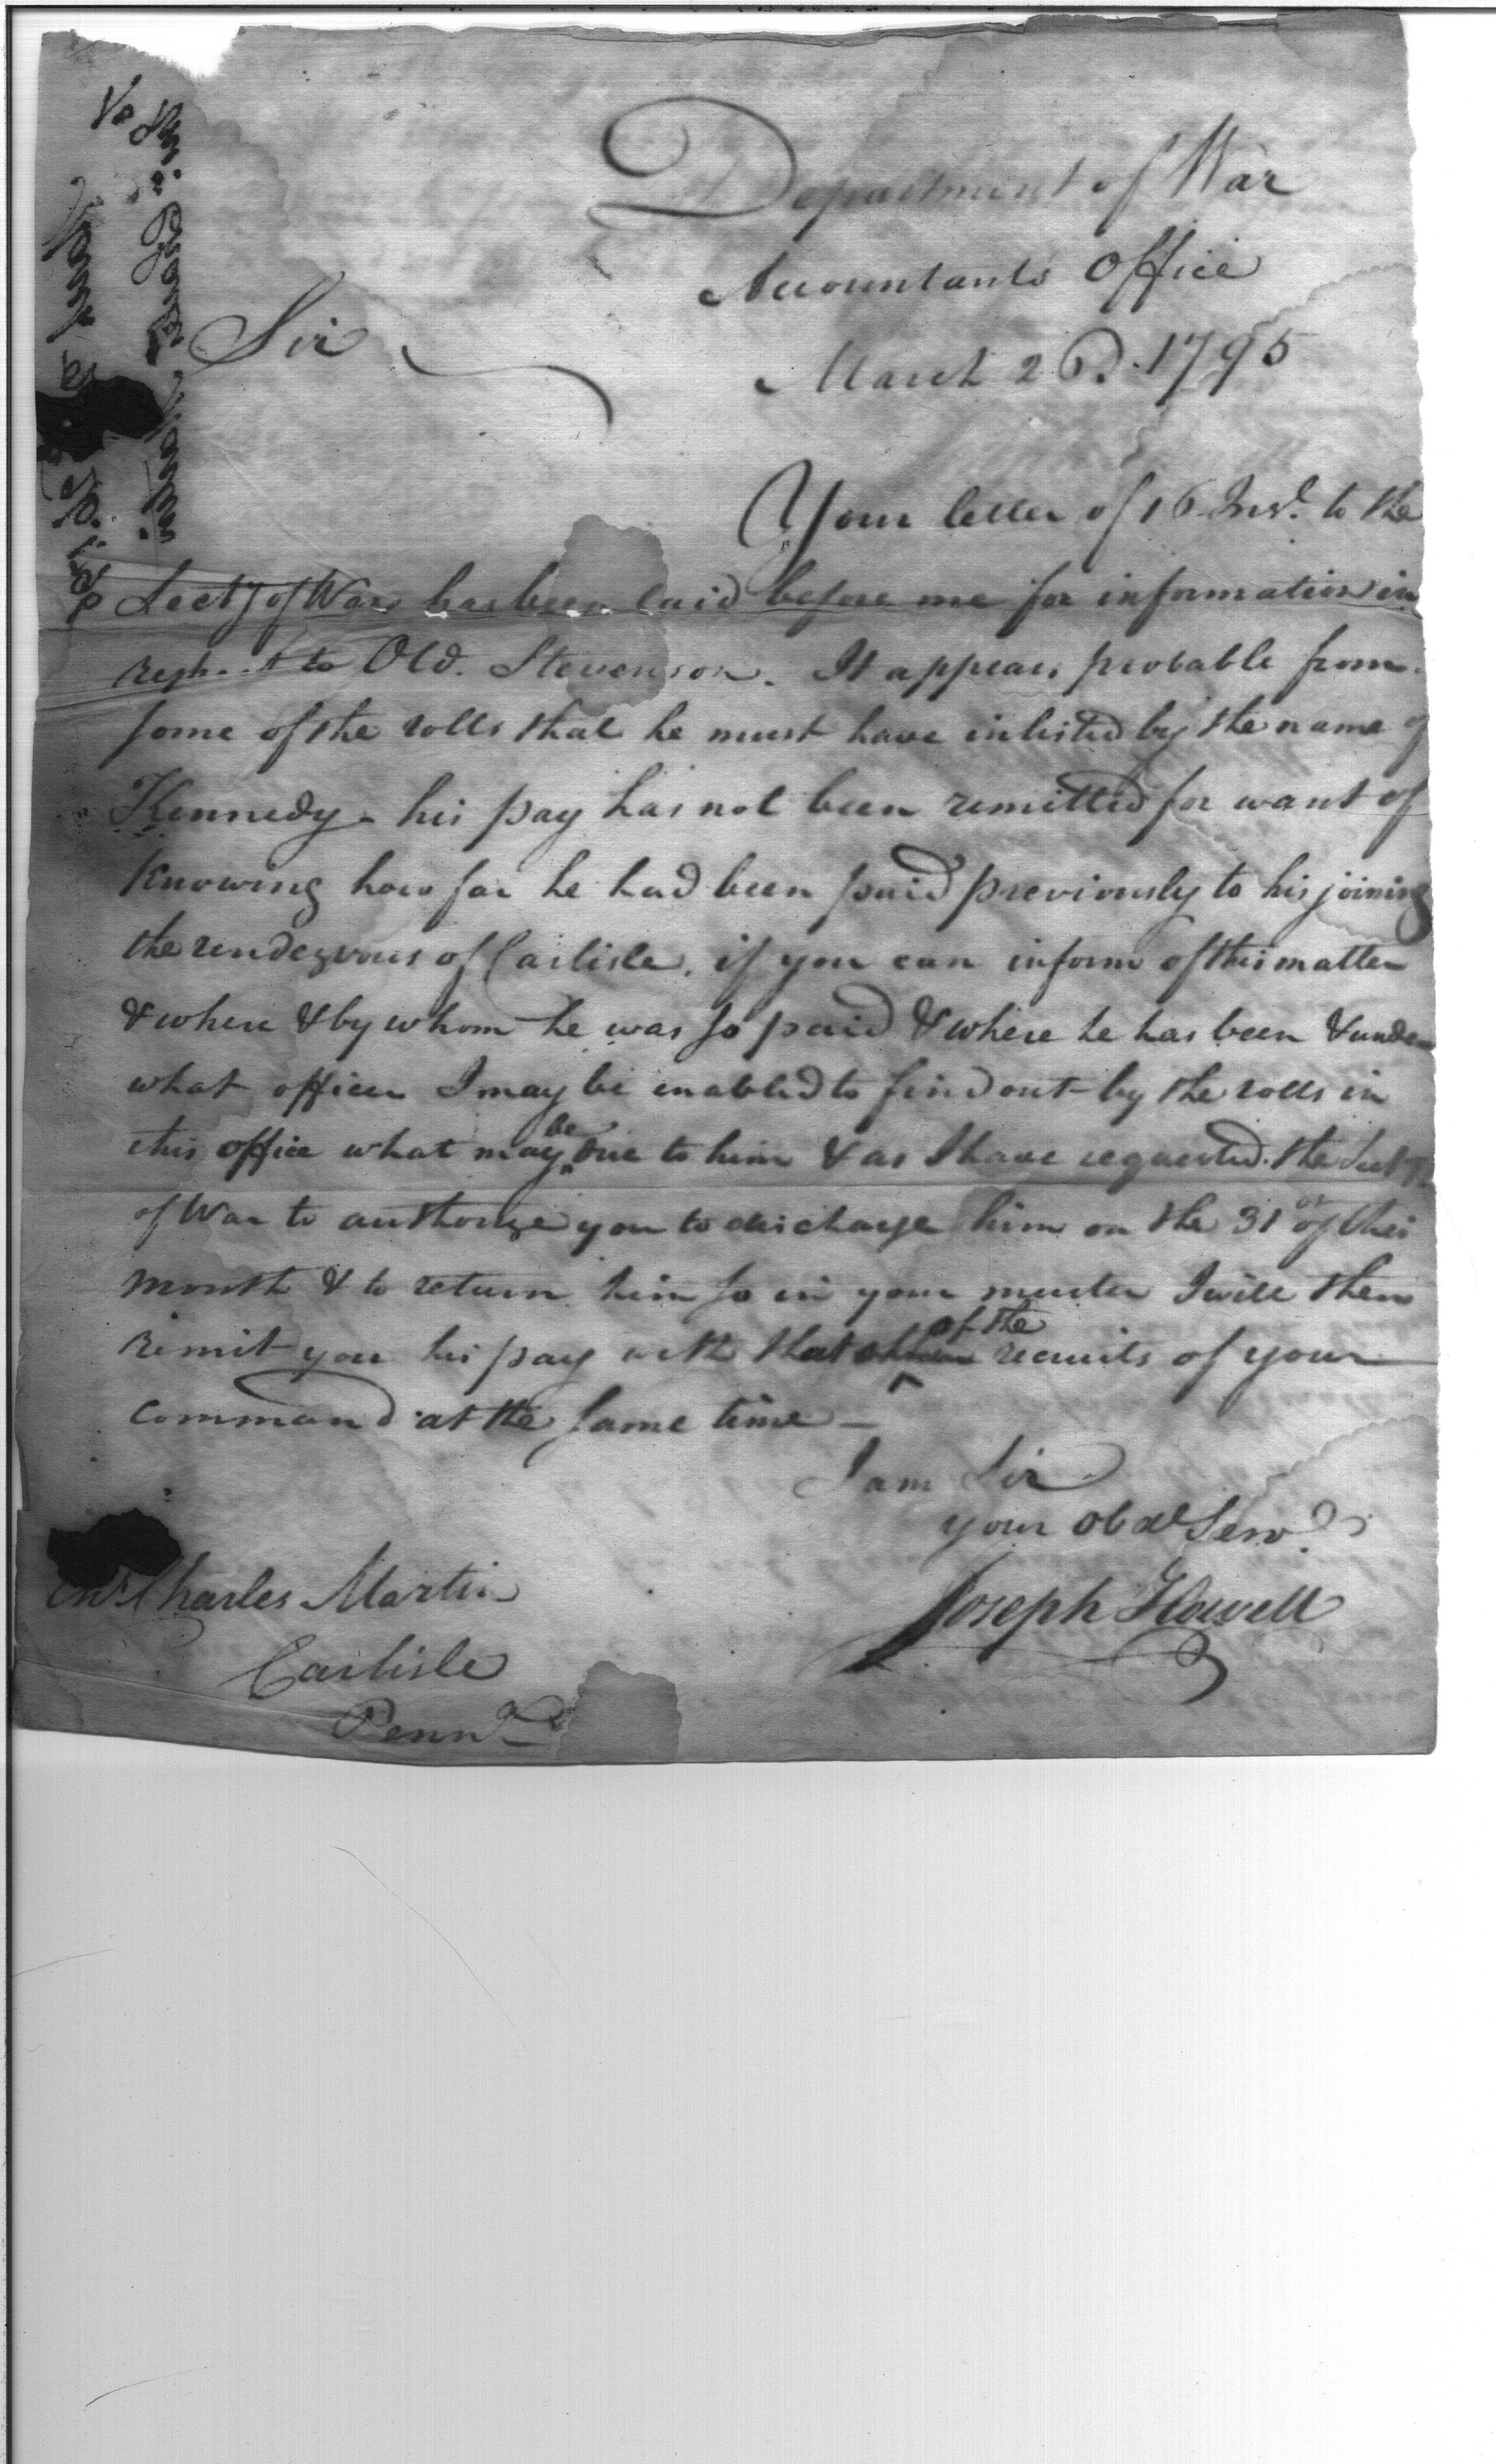 Department of War
Accountants Office
March 26. 1795
Sir
Your letter of 16 Inst. to the
Secty of War has been laid before me for information in
respect to Old. Stevenson. It appears probable from
some of the rolls that he must have inlisted by the name of
Kennedy - his pay has not been remitted for want of
knowing how far he had been paid previously to his joining
the rendezvous of Carlisle. if you can inform of this matter
& where & by whom he was so paid & where he has been & under
what officer I may be enabled to find out by the rolls in
this office what may be due to him & as I have requested the Secty
of War to authorize you to discharge him on the 31st of this
month & to return him so in your muster I will then
remit you his pay with that of the recruits of your
command at the same time -
I am Sir
your obdt Servt
Joseph Howell
Ensn Charles Martin
Carlisle
Penna